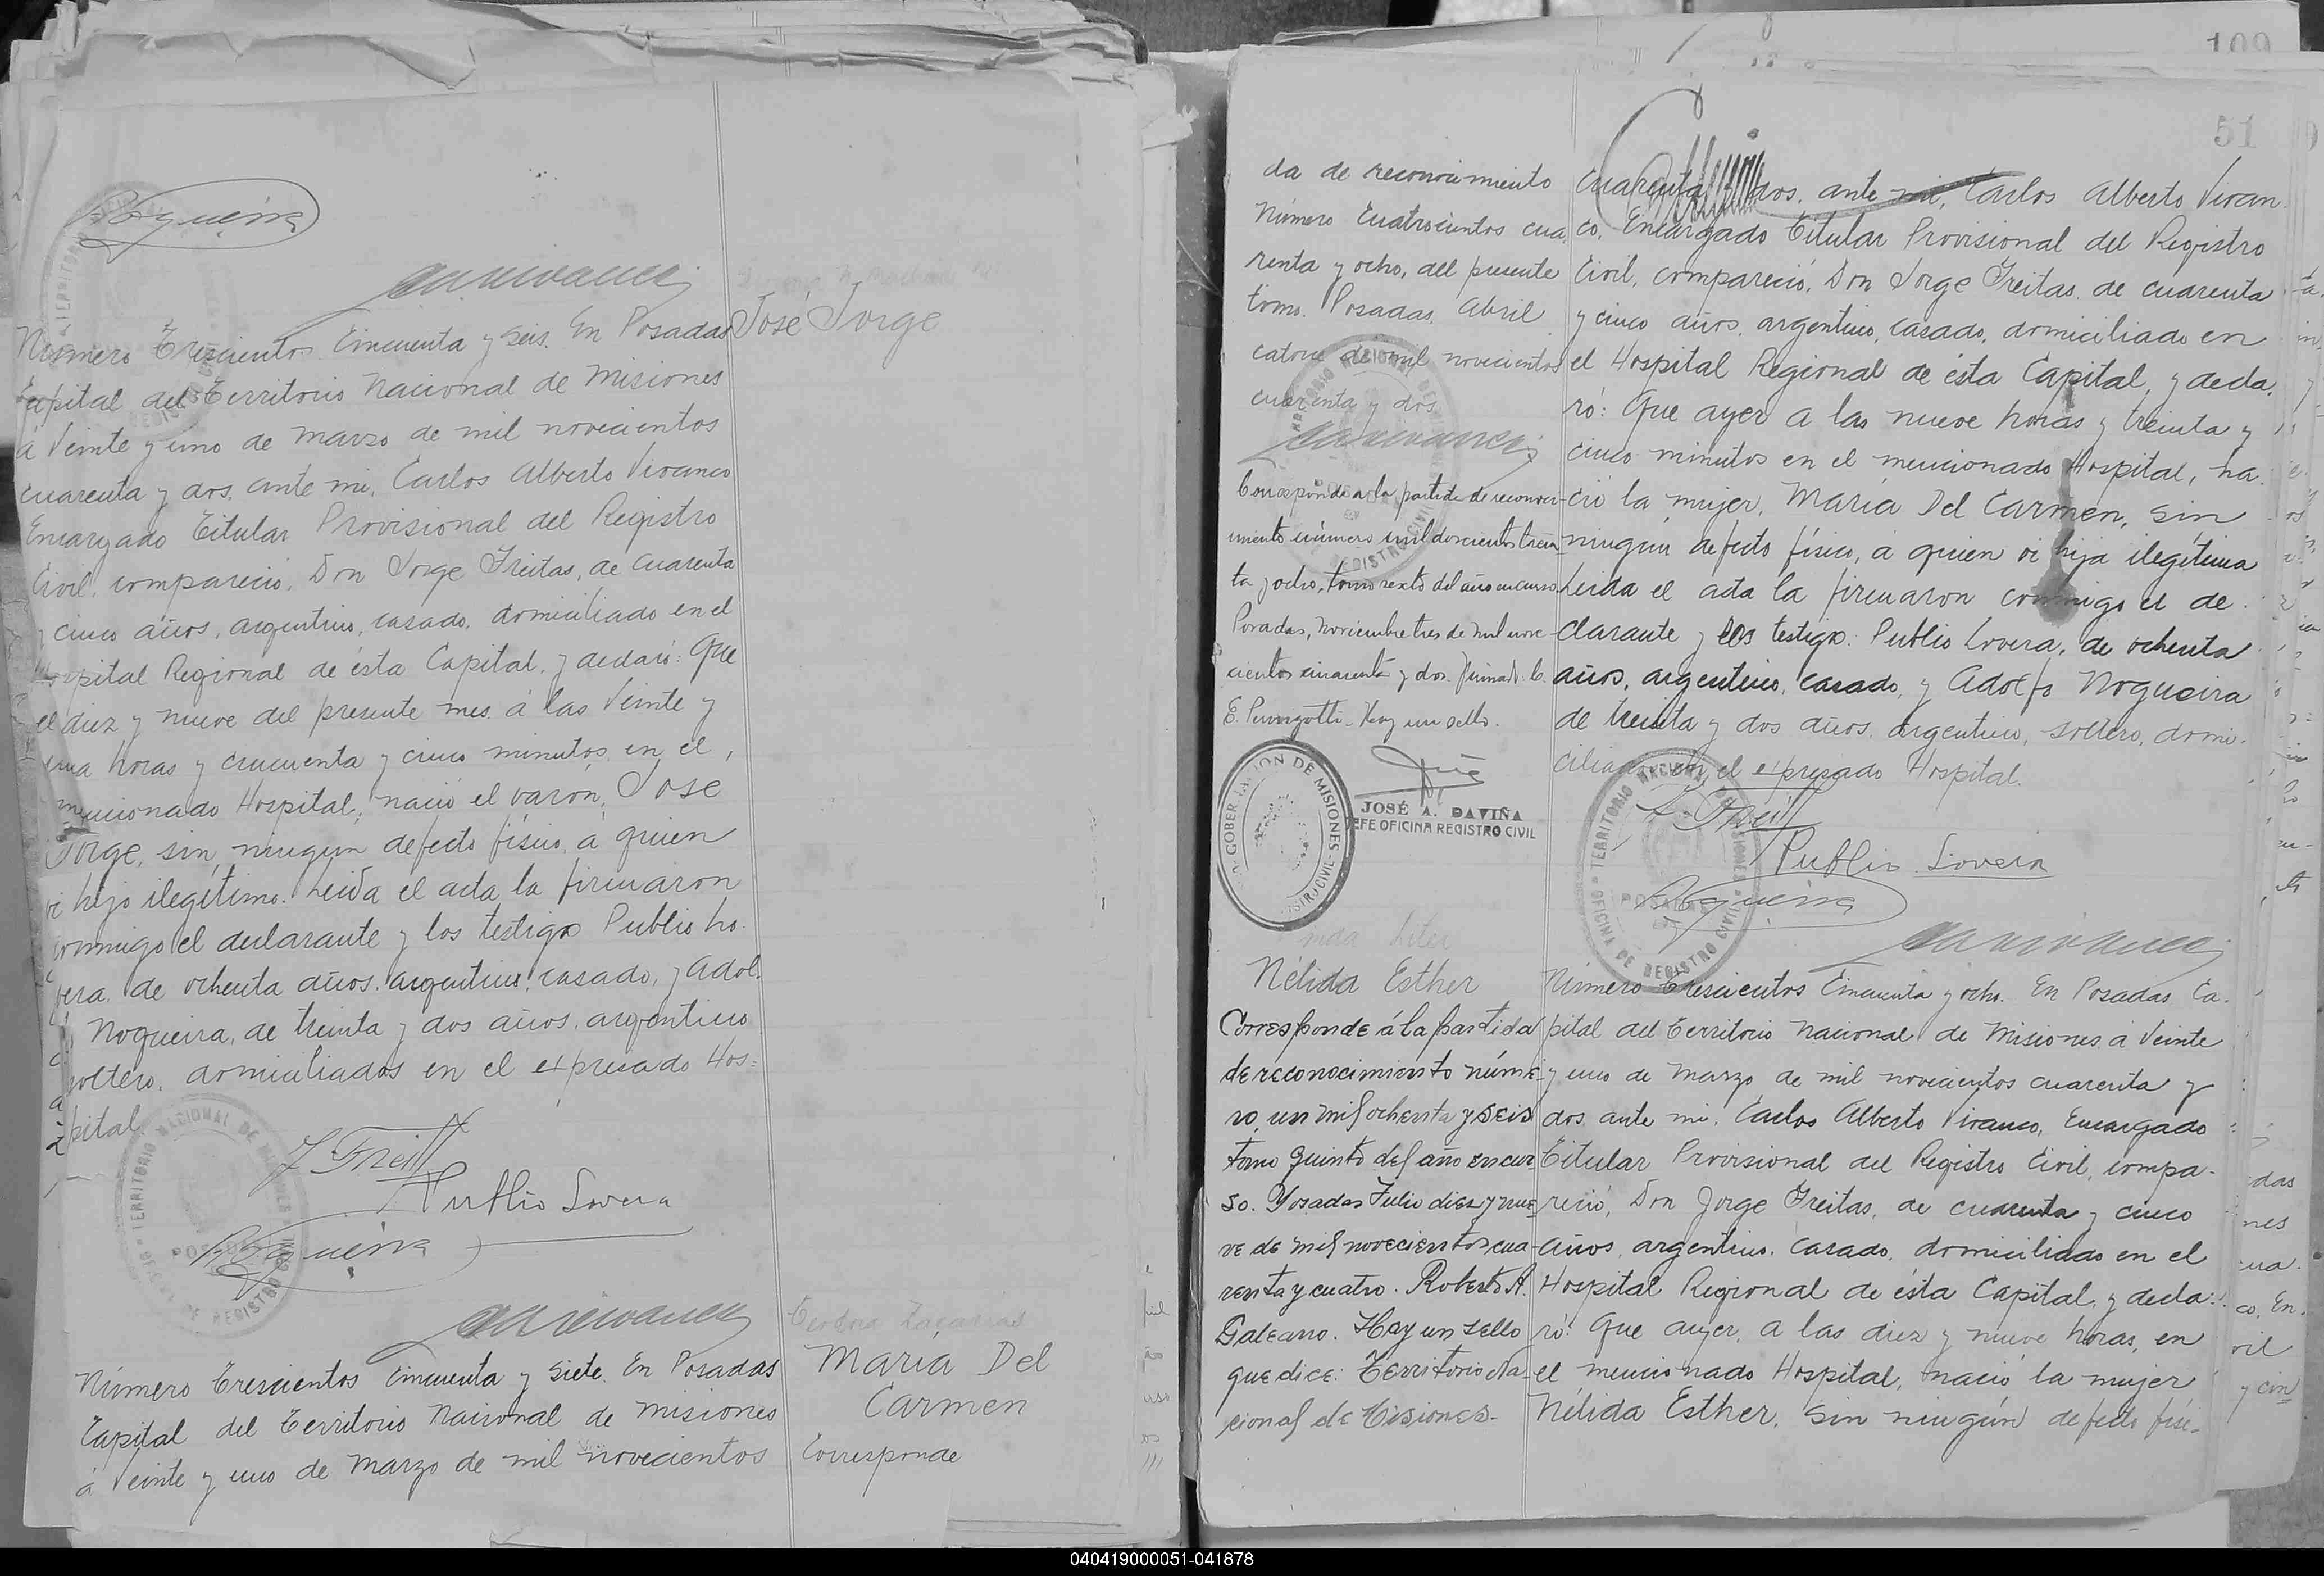 José Jorge
Número Trescientos Cincuenta y seis. En Posadas
Capital del Territorio Nacional de Misiones
á Veinte y uno de Marzo de mil novecientos
cuarenta y dos. ante mi, Carlos Alberto Vivanco
Encargado Titular Provisional del Registro
Civil, compareció, Don Jorge Freitas, de cuarenta
y cinco años, argentino, casado, domiciliado en el
Hospital Regional de ésta Capital, y declaró: Que
el diez y nueve del presente mes. á las Veinte y
una horas y cincuenta y cinco minutos, en el
mencionado Hospital, nació el varón, José
Jorge, sin ningún defecto físico, á quien
vi hijo ilegítimo. Leida el acta, la firmaron
conmigo el declarante y los testigos Publio Lo-
vera, de ochenta años, argentino, casado, y Adol.
Nogueira, de treinta y dos años, argentino
soltero, domiciliados en el expresado Hos-
pital.
TERRITORIO NACIONAL DE MISIONES
POSADAS
J Freit
Publio Lovera
María Del
Carmen
Corresponde
Número Trescientos Cincuenta y siete. En Posadas
Capital del Territorio Nacional de Misiones
á Veinte y uno de Marzo de mil novecientos
109
51
da de reconocimiento
Número Cuatrocientos cua
renta y ocho, del presente
tomo. Posadas, Abril
catorce de mil novecientos
cuarenta y dos
Corresponde a la partida de reconoci-
miento número mil doscientos trein
ta y ocho, tomo sexto del año en curso
Posadas, noviembre tres de mil nove-
cientos cuarenta y dos. firmado: C.
Hay un sello.
GOBERNACION DE MISIONES
JOSÉ A. DAVIÑA
JEFE OFICINA REGISTRO CIVIL
cuarenta dos. ante mi, Carlos Alberto Vivan-
co. Encargado Titular Provisional del Registro
Civil, compareció, Don Jorge Freitas, de cuarenta
y cinco años, argentino, casado, domiciliado en
el Hospital Regional de ésta Capital, y decla.
ró: Que ayer a las nueve horas y treinta y
cinco minutos en el mencionado Hospital, na.
ció la mujer, María Del Carmen, sin
ningún defecto físico, á quien vi hija ilegítima
Leida el acta la firmaron conmigo el de.
clarante y los testigos: Publio Lovera, de ochenta
años, argentino, casado, y Adolfo Nogueira
de treinta y dos años, argentino, soltero, domi.
ciliados en el expresado Hospital.
J. Freit
Publio Lovera
TERRITORIO NACIONAL DE MISIONES
OFICINA DE REGISTRO CIVIL
POSADAS
Nélida Esther
Corresponde á la partida
de reconocimiento núme-
ro, un mil ochenta y seis
tomo quinto del año en cur
so. Posadas Julio diez y nue
ve de mil novecientos cua-
renta y cuatro. Roberto A.
Galeano. Hay un sello
que dice: Territorio Na-
cional de Misiones-
Número Trescientos Cincuenta y ocho. En Posadas, Ca.
pital del Territorio Nacional de Misiones á Veinte
y uno de Marzo de mil novecientos cuarenta y
dos, ante mi, Carlos Alberto Vivanco, Encargado
Titular Provisional del Registro Civil, compa-
reció, Don Jorge Freitas, de cuarenta y cinco
años, argentino, casado, domiciliado en el
Hospital Regional de ésta Capital, y decla-
ró: Que ayer, a las diez y nueve horas, en
el mencionado Hospital, nació la mujer
Nélida Esther, sin ningún defecto físi-
040419000051-041878